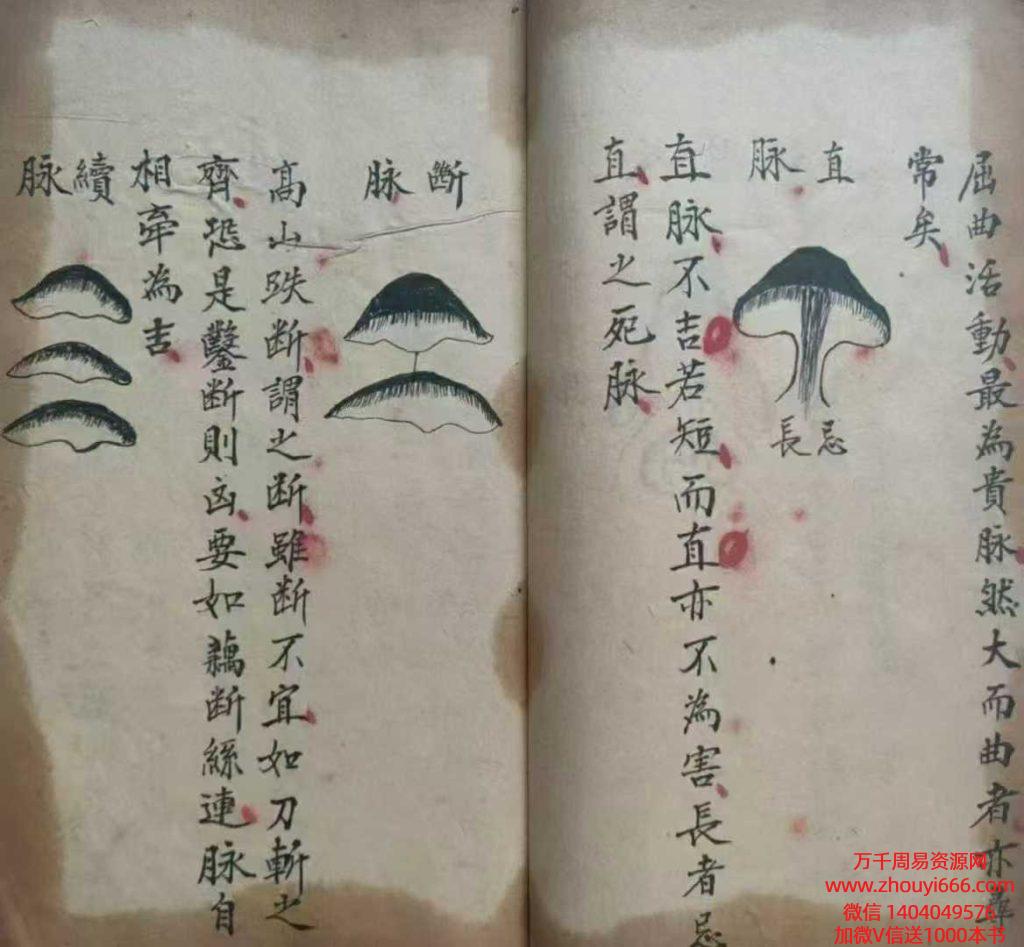 屈曲活動最為貴脉然大而曲者亦
常矣
直脉
忌長
直脉不吉若短而直亦不為害長者忌
直謂之死脉
斷脉
高山跌断謂之断雖断不宜如刀斬之
齊恐是鑿断則凶要如藕断絲連脉自
相牵為吉
續脉
万千周易资源网
www.zhouyi666.com
微信 1404049576
加微V信送1000本书